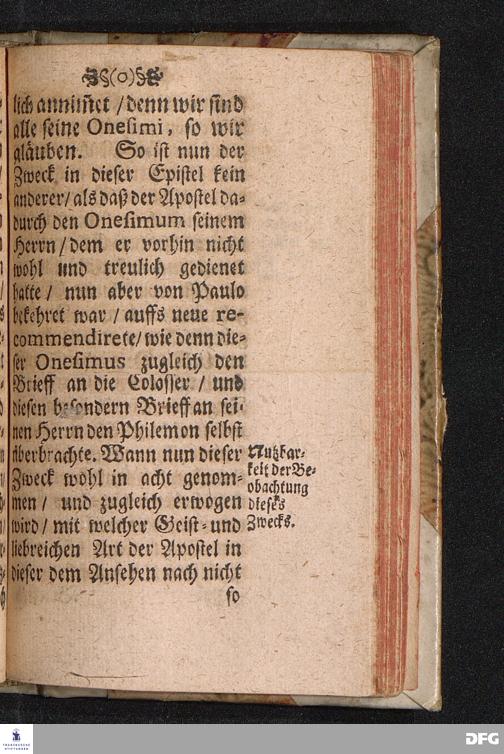 (o)
lich annim̃et / denn wir sind
alle seine Onesimi, so wir
gläuben. So ist nun der
Zweck in dieser Epistel kein
anderer / als daß der Apostel da-
durch den Onesimum seinem
Herrn / dem er vorhin nicht
wohl und treulich gedienet
hatte / nun aber von Paulo
bekehret war / auffs neue re-
commendirete / wie denn die-
ser Onesimus zugleich den
Brieff an die Colosser / und
diesen besondern Brieff an sei-
nen Herrn den Philemon selbst
überbrachte. Wann nun dieser
Zweck wohl in acht genom-
men / und zugleich erwogen
wird / mit welcher Geist- und
liebreichen Art der Apostel in
dieser dem Ansehen nach nicht
so
Nutzbar-
keit der Be-
obachtung
dieses
Zwecks.
FRANCKESCHE
STIFTUNGEN
DFG